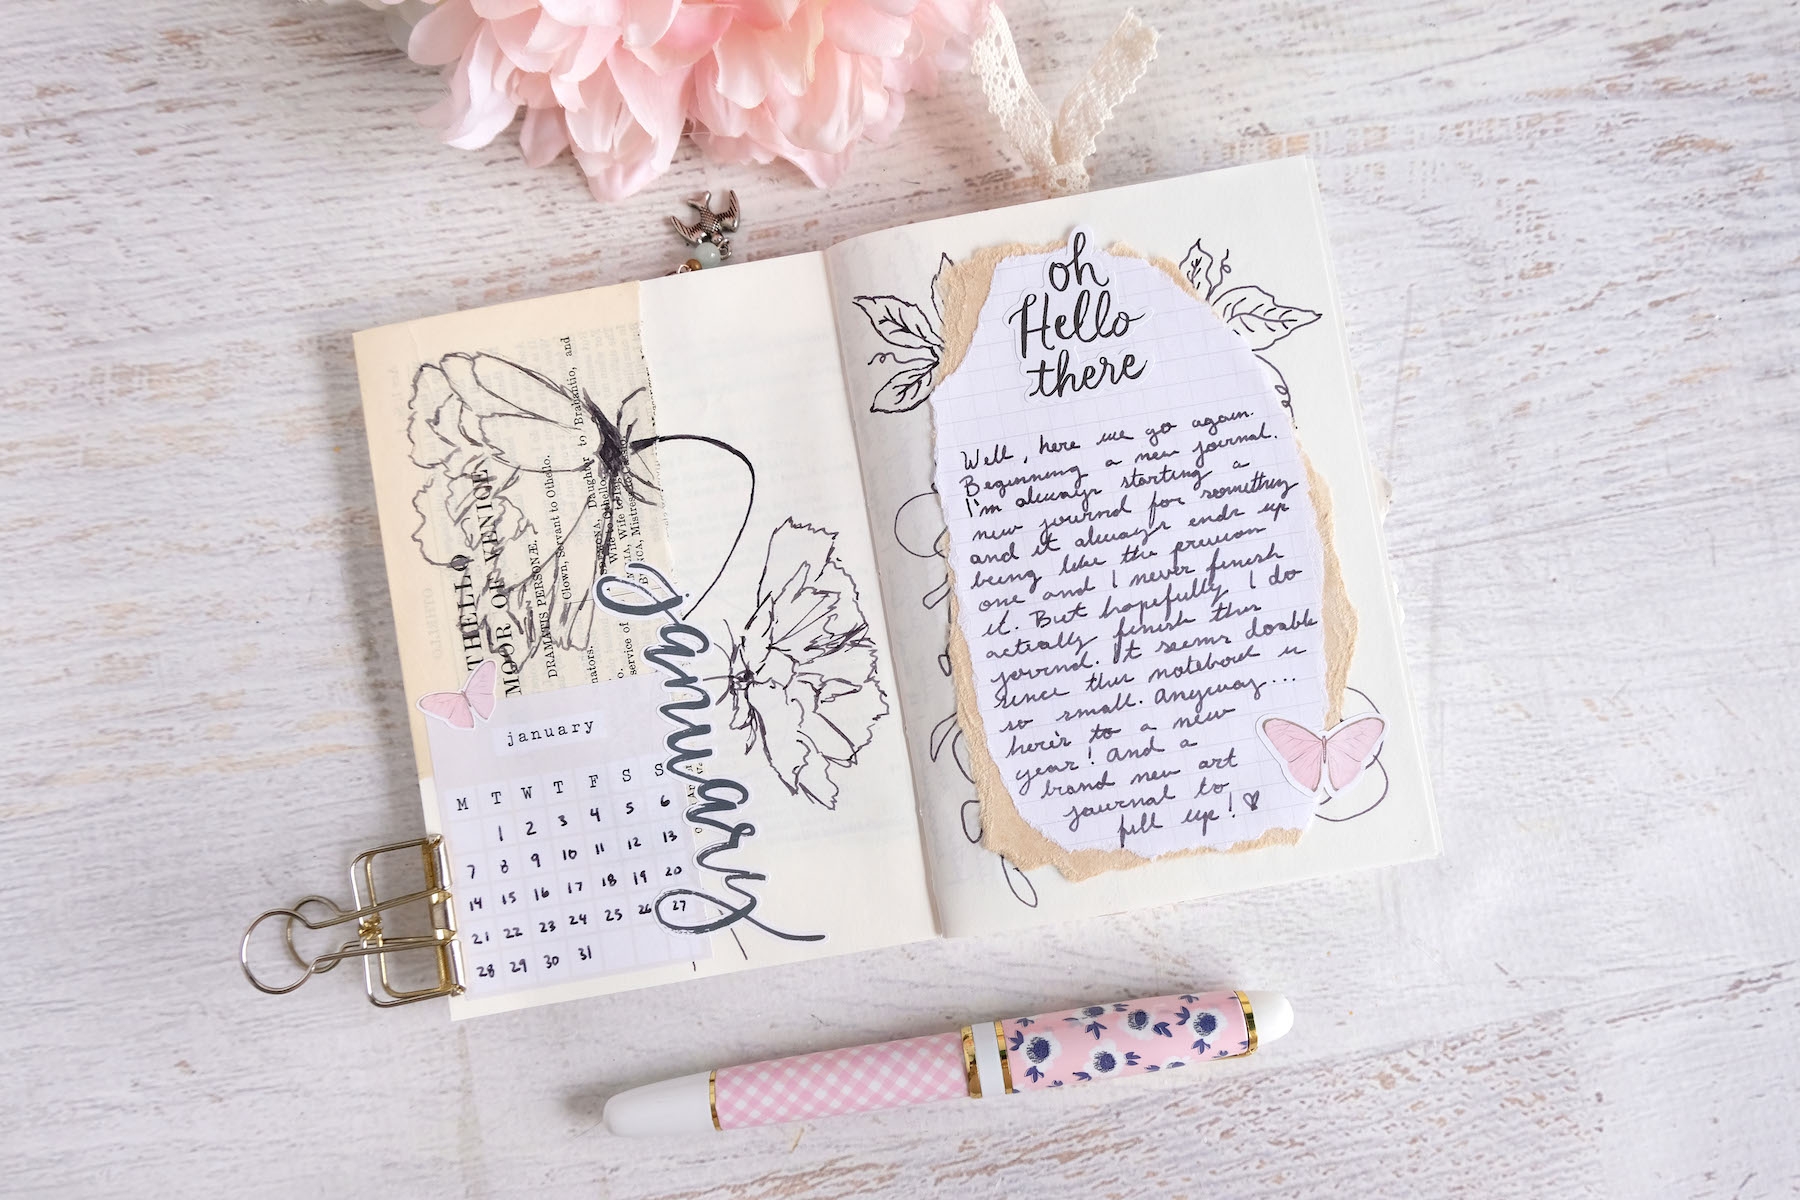 THELLO
MOOR OF VENICE
DRAMATIS PERSONÆ.
Clown, Servant to Othello.
Daughter to Brabantio, and
Wife to Othello.
Wife to Iago.
Mistress
nators.
service of
january
M T W T F S S
1 2 3 4 5 6
7 8 9 10 11 12 13
14 15 16 17 18 19 20
21 22 23 24 25 26 27
28 29 30 31
January
oh
Hello
there
Well, here we go again.
Beginning a new journal.
I'm always starting a
new journal for something
and it always ends up
being like the previous
one and I never finish
it. But hopefully I do
actually finish this
journal. It seems doable
since this notebook is
so small. Anyway...
here's to a new
year! And a
brand new art
journal to
fill up! ♥